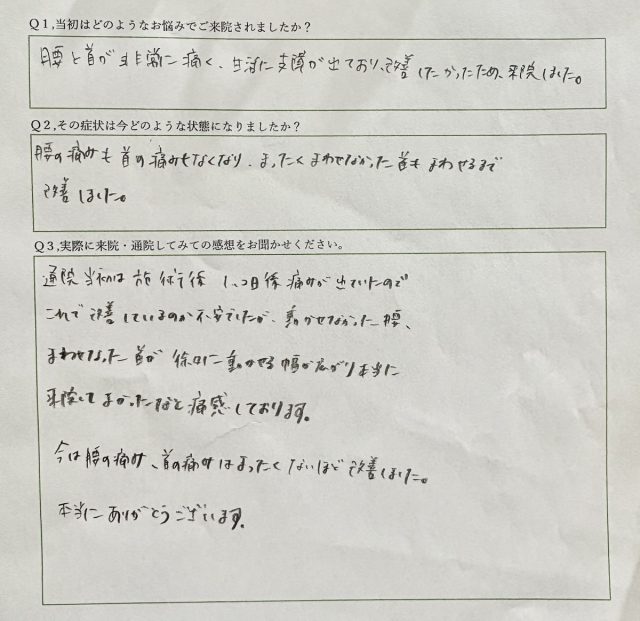 Q1,当初はどのようなお悩みでご来院されましたか?
腰と首が非常に痛く、生活に支障が出ており、改善したかったため、来院しました。
Q2,その症状は今どのような状態になりましたか?
腰の痛みも首の痛みもなくなり、まったくまわせなかった首もまわせるまで
改善しました。
Q3,実際に来院・通院してみての感想をお聞かせください。
通院当初は施術後1、2日後痛みが出ていたので
これで改善しているのか不安でしたが、動かせなかった腰、
まわせなかった首が徐々に動かせる幅が広がり本当に
来院してよかったなと痛感しております。
今は腰の痛み、首の痛みはまったくないほど改善しました。
本当にありがとうございます。